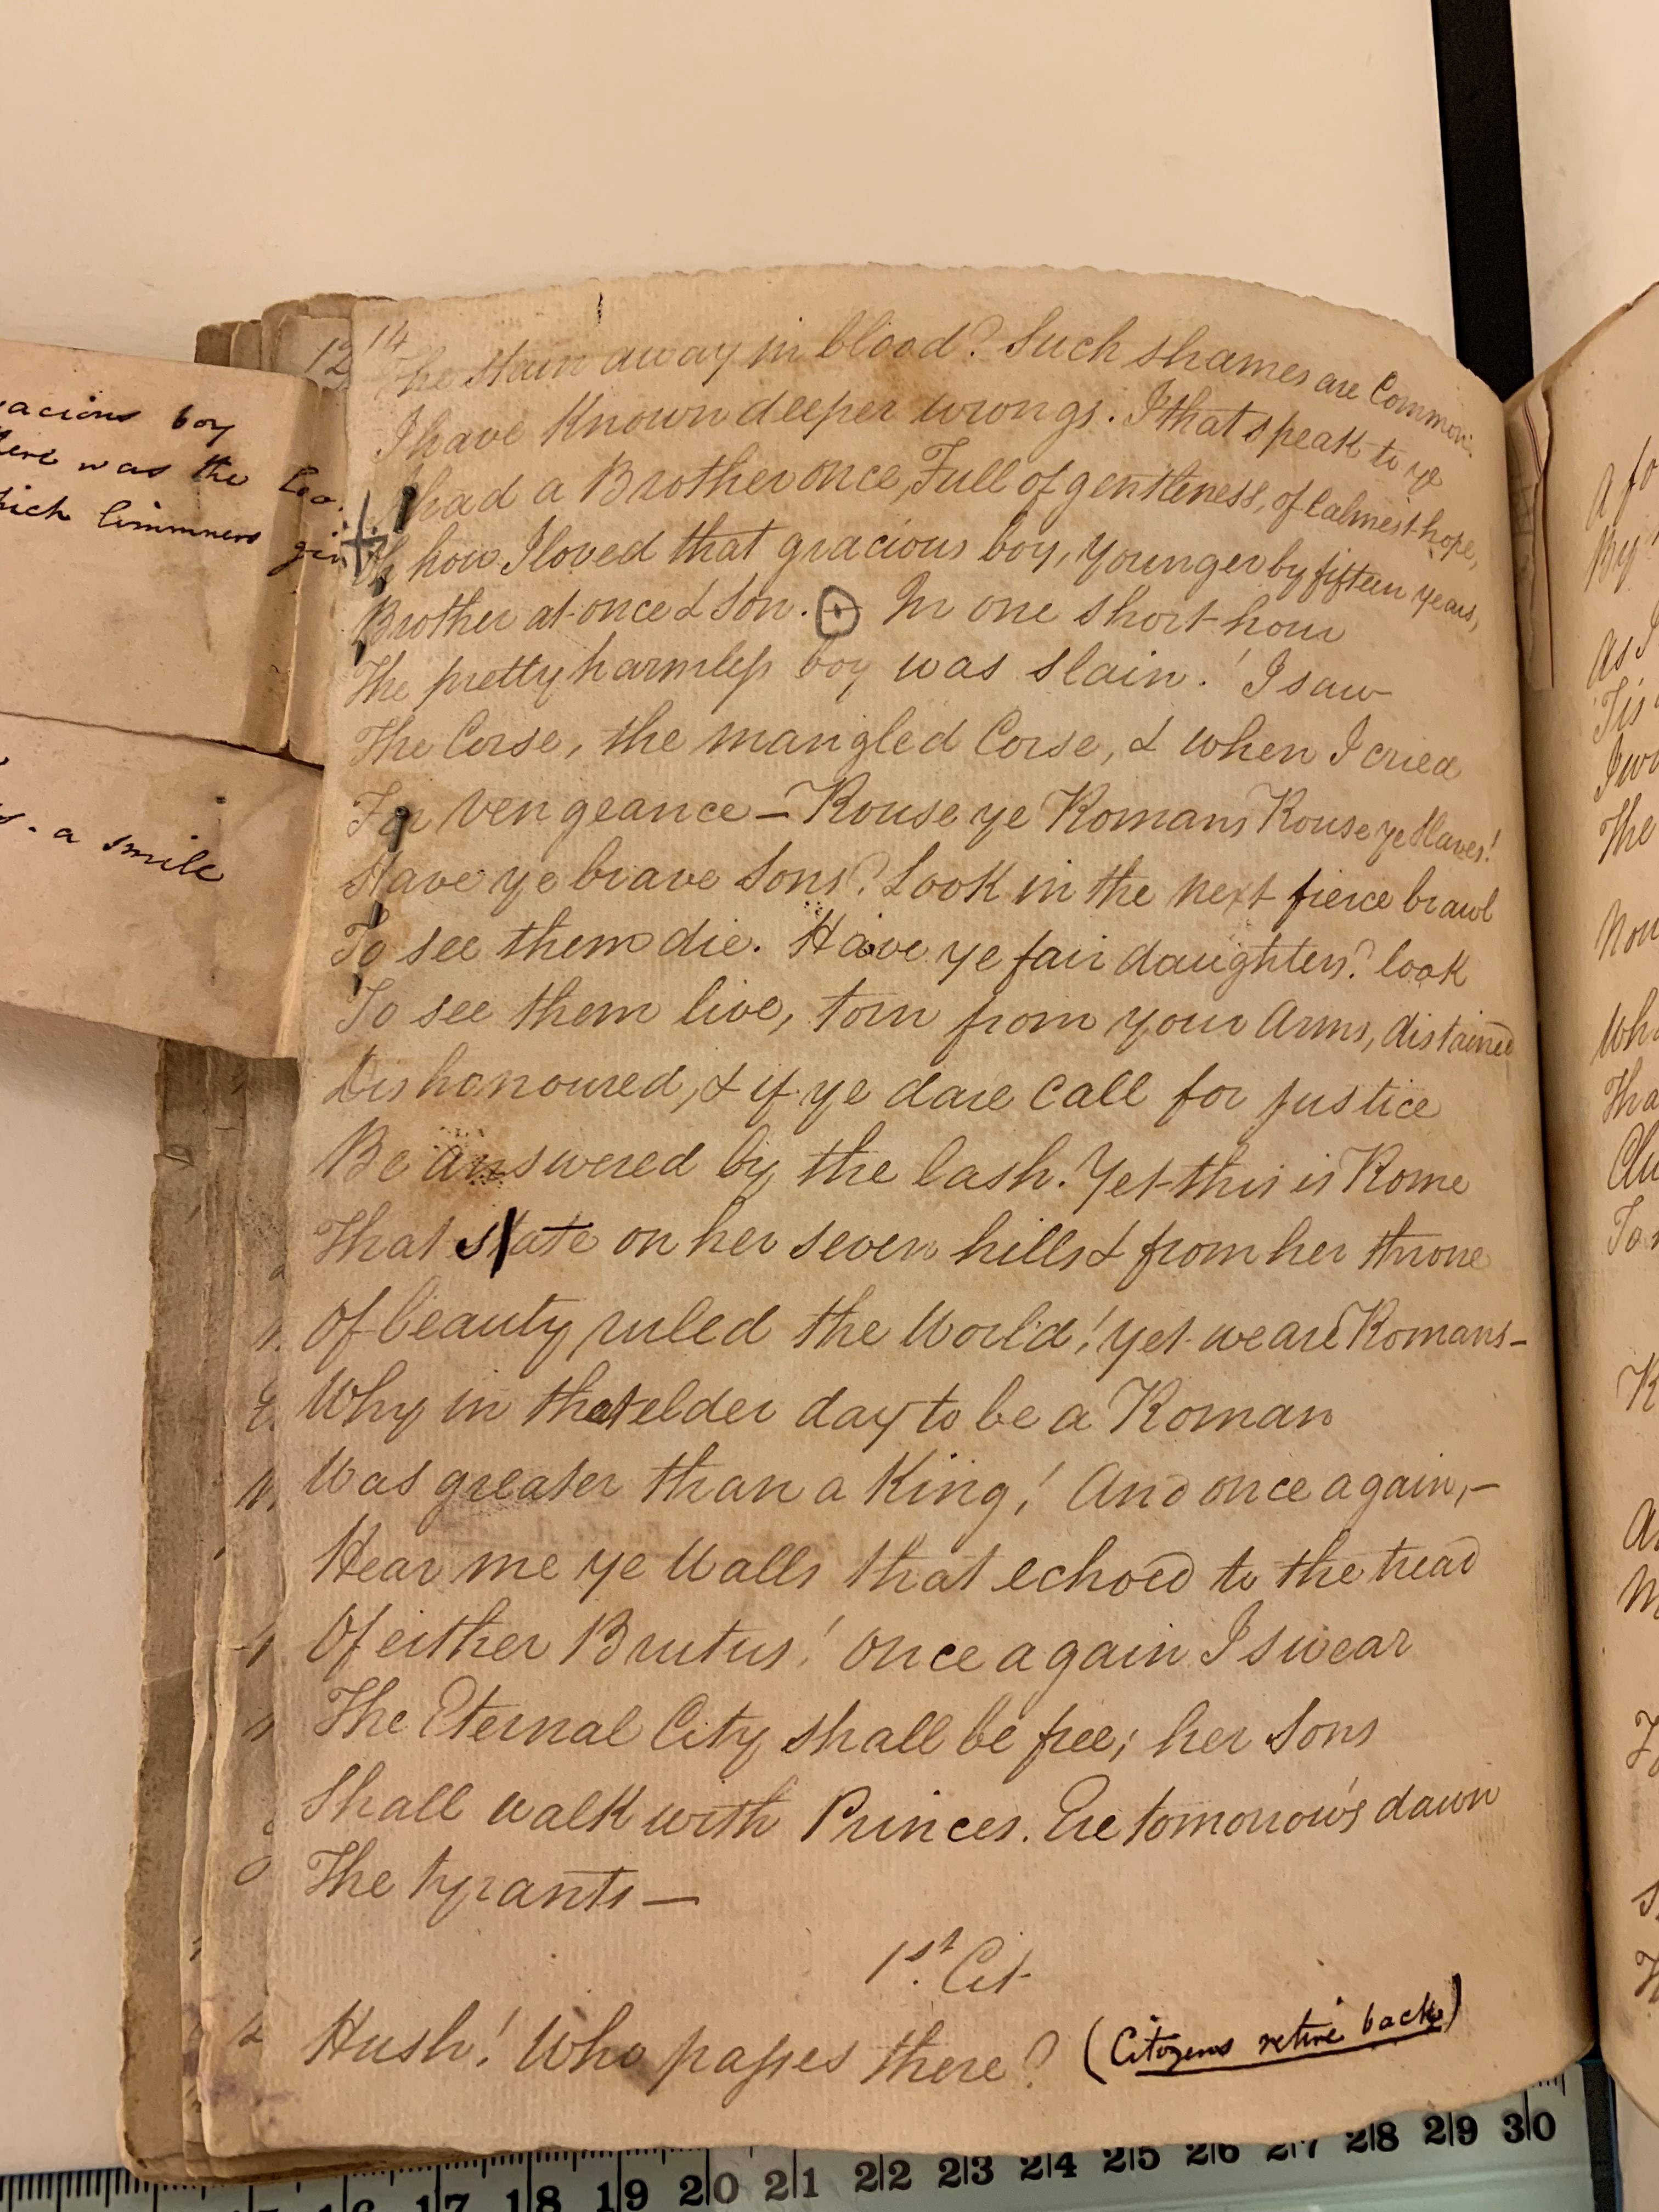 acious boy
here was the loo
hich limmners gi
. a smile
12
14
The stain away in blood? Such shames are Common.
I have Known deeper wrongs. I that speak to ye
I had a Brother once, Full of gentleness, of Calmest hope,
Oh how I loved that gracious boy, Younger by fifteen years,
Brother at once & Son. In one short hour
The pretty harmless boy was slain! I saw
The Corse, the mangled Corse, & when I cried
For vengeance – Rouse ye Romans Rouse ye Slaves!
Have ye brave Sons? Look in the next fierce brawl
To see them die. Have ye fair daughters? look
To see them live, torn from your Arms, distained
Dishonoured, & if ye dare Call for justice
Be answered by the lash. Yet this is Rome
That sate on her seven hills & from her throne
Of beauty ruled the World! Yet we are Romans –
Why in that elder day to be a Roman
Was greater than a King! And once again, –
Hear me ye Walls that echoed to the tread
Of either Brutus! Once again I swear
The Eternal City shall be free; her Sons
Shall walk with Princes. Ere tomorrow's dawn
The tyrants —
1st. Cit
Hush! Who passes there? (Citizens retire back)
A fo
By
As I
Tis
I wo
The
Now
Wh
Tha
To
K
16 17 18 19 20 21 22 23 24 25 26 27 28 29 30